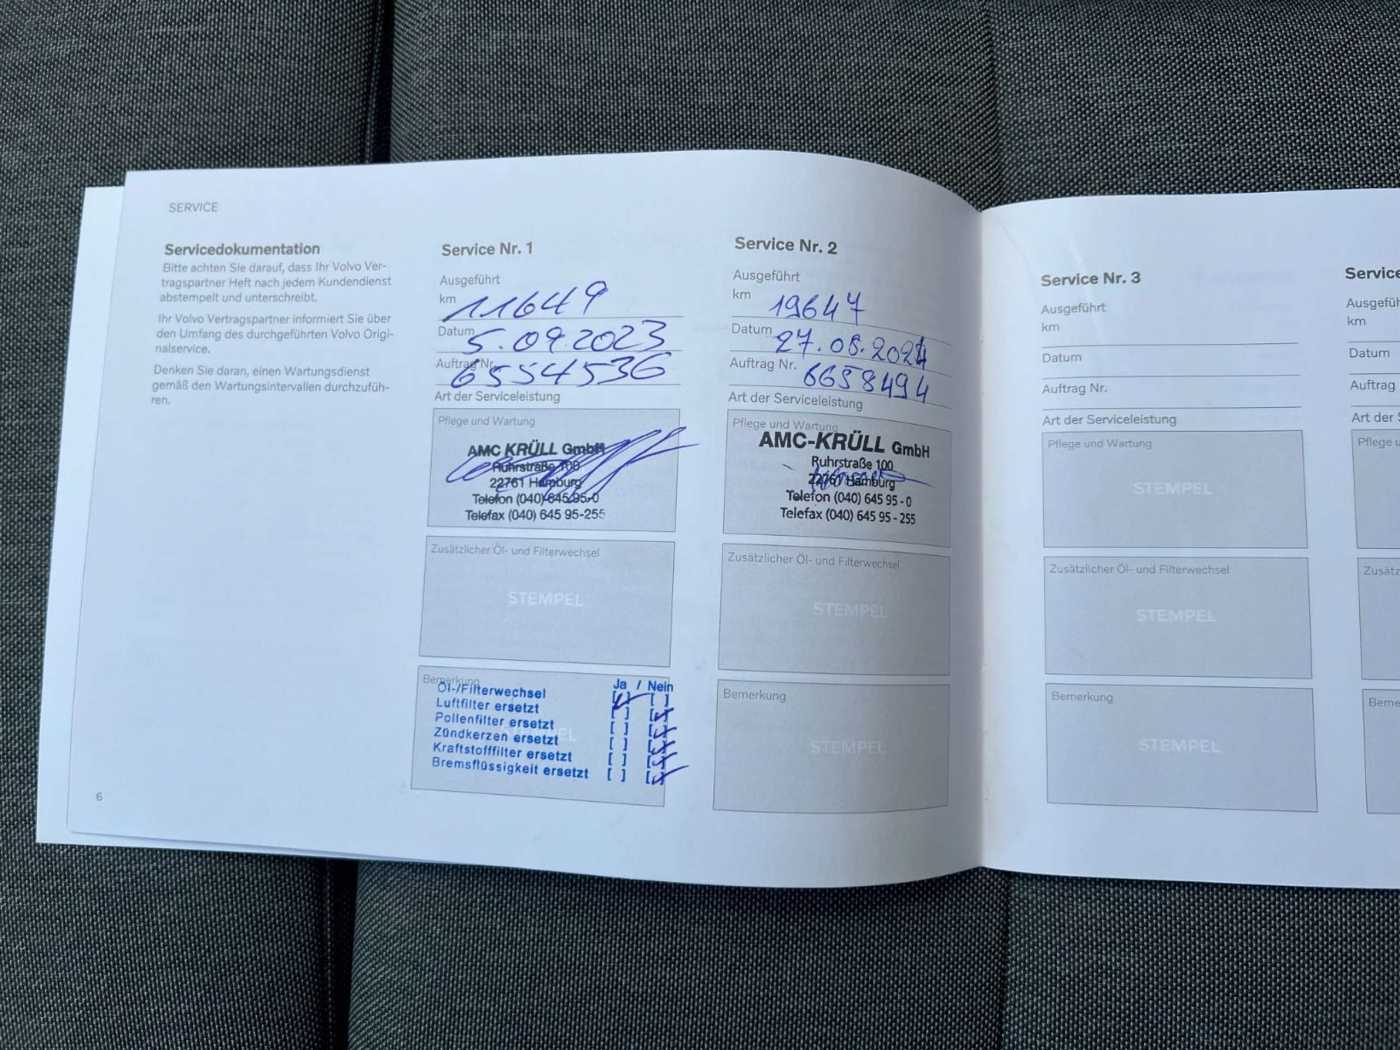 SERVICE
Servicedokumentation
Bitte achten Sie darauf, dass Ihr Volvo Ver-
tragspartner Heft nach jedem Kundendienst
abstempelt und unterschreibt.
Ihr Volvo Vertragspartner informiert Sie über
den Umfang des durchgeführten Volvo Origi-
nalservice.
Denken Sie daran, einen Wartungsdienst
gemäß den Wartungsintervallen durchzufüh-
ren.
6
Service Nr. 1
Ausgeführt
km 11649
Datum 5.09.2023
Auftrag Nr. 6554536
Art der Serviceleistung
Pflege und Wartung
AMC KRÜLL GmbH
Ruhrstraße 100
22761 Hamburg
Telefon (040) 645 95-0
Telefax (040) 645 95-255
Zusätzlicher Öl- und Filterwechsel
STEMPEL
Bemerkung
Ja / Nein
Öl-/Filterwechsel [ ] [ ]
Luftfilter ersetzt [ ] [ ]
Pollenfilter ersetzt [ ] [ ]
Zündkerzen ersetzt [ ] [ ]
Kraftstofffilter ersetzt [ ] [ ]
Bremsflüssigkeit ersetzt [ ] [ ]
Service Nr. 2
Ausgeführt
km 19647
Datum 27.08.2024
Auftrag Nr. 6658494
Art der Serviceleistung
Pflege und Wartung
AMC-KRÜLL GmbH
Ruhrstraße 100
22761 Hamburg
Telefon (040) 645 95 - 0
Telefax (040) 645 95 - 255
Zusätzlicher Öl- und Filterwechsel
STEMPEL
Bemerkung
STEMPEL
Service Nr. 3
Ausgeführt
km
Datum
Auftrag Nr.
Art der Serviceleistung
Pflege und Wartung
STEMPEL
Zusätzlicher Öl- und Filterwechsel
STEMPEL
Bemerkung
STEMPEL
Service
Ausgefüh
km
Datum
Auftrag
Art der S
Pflege u
Zusätz
Beme